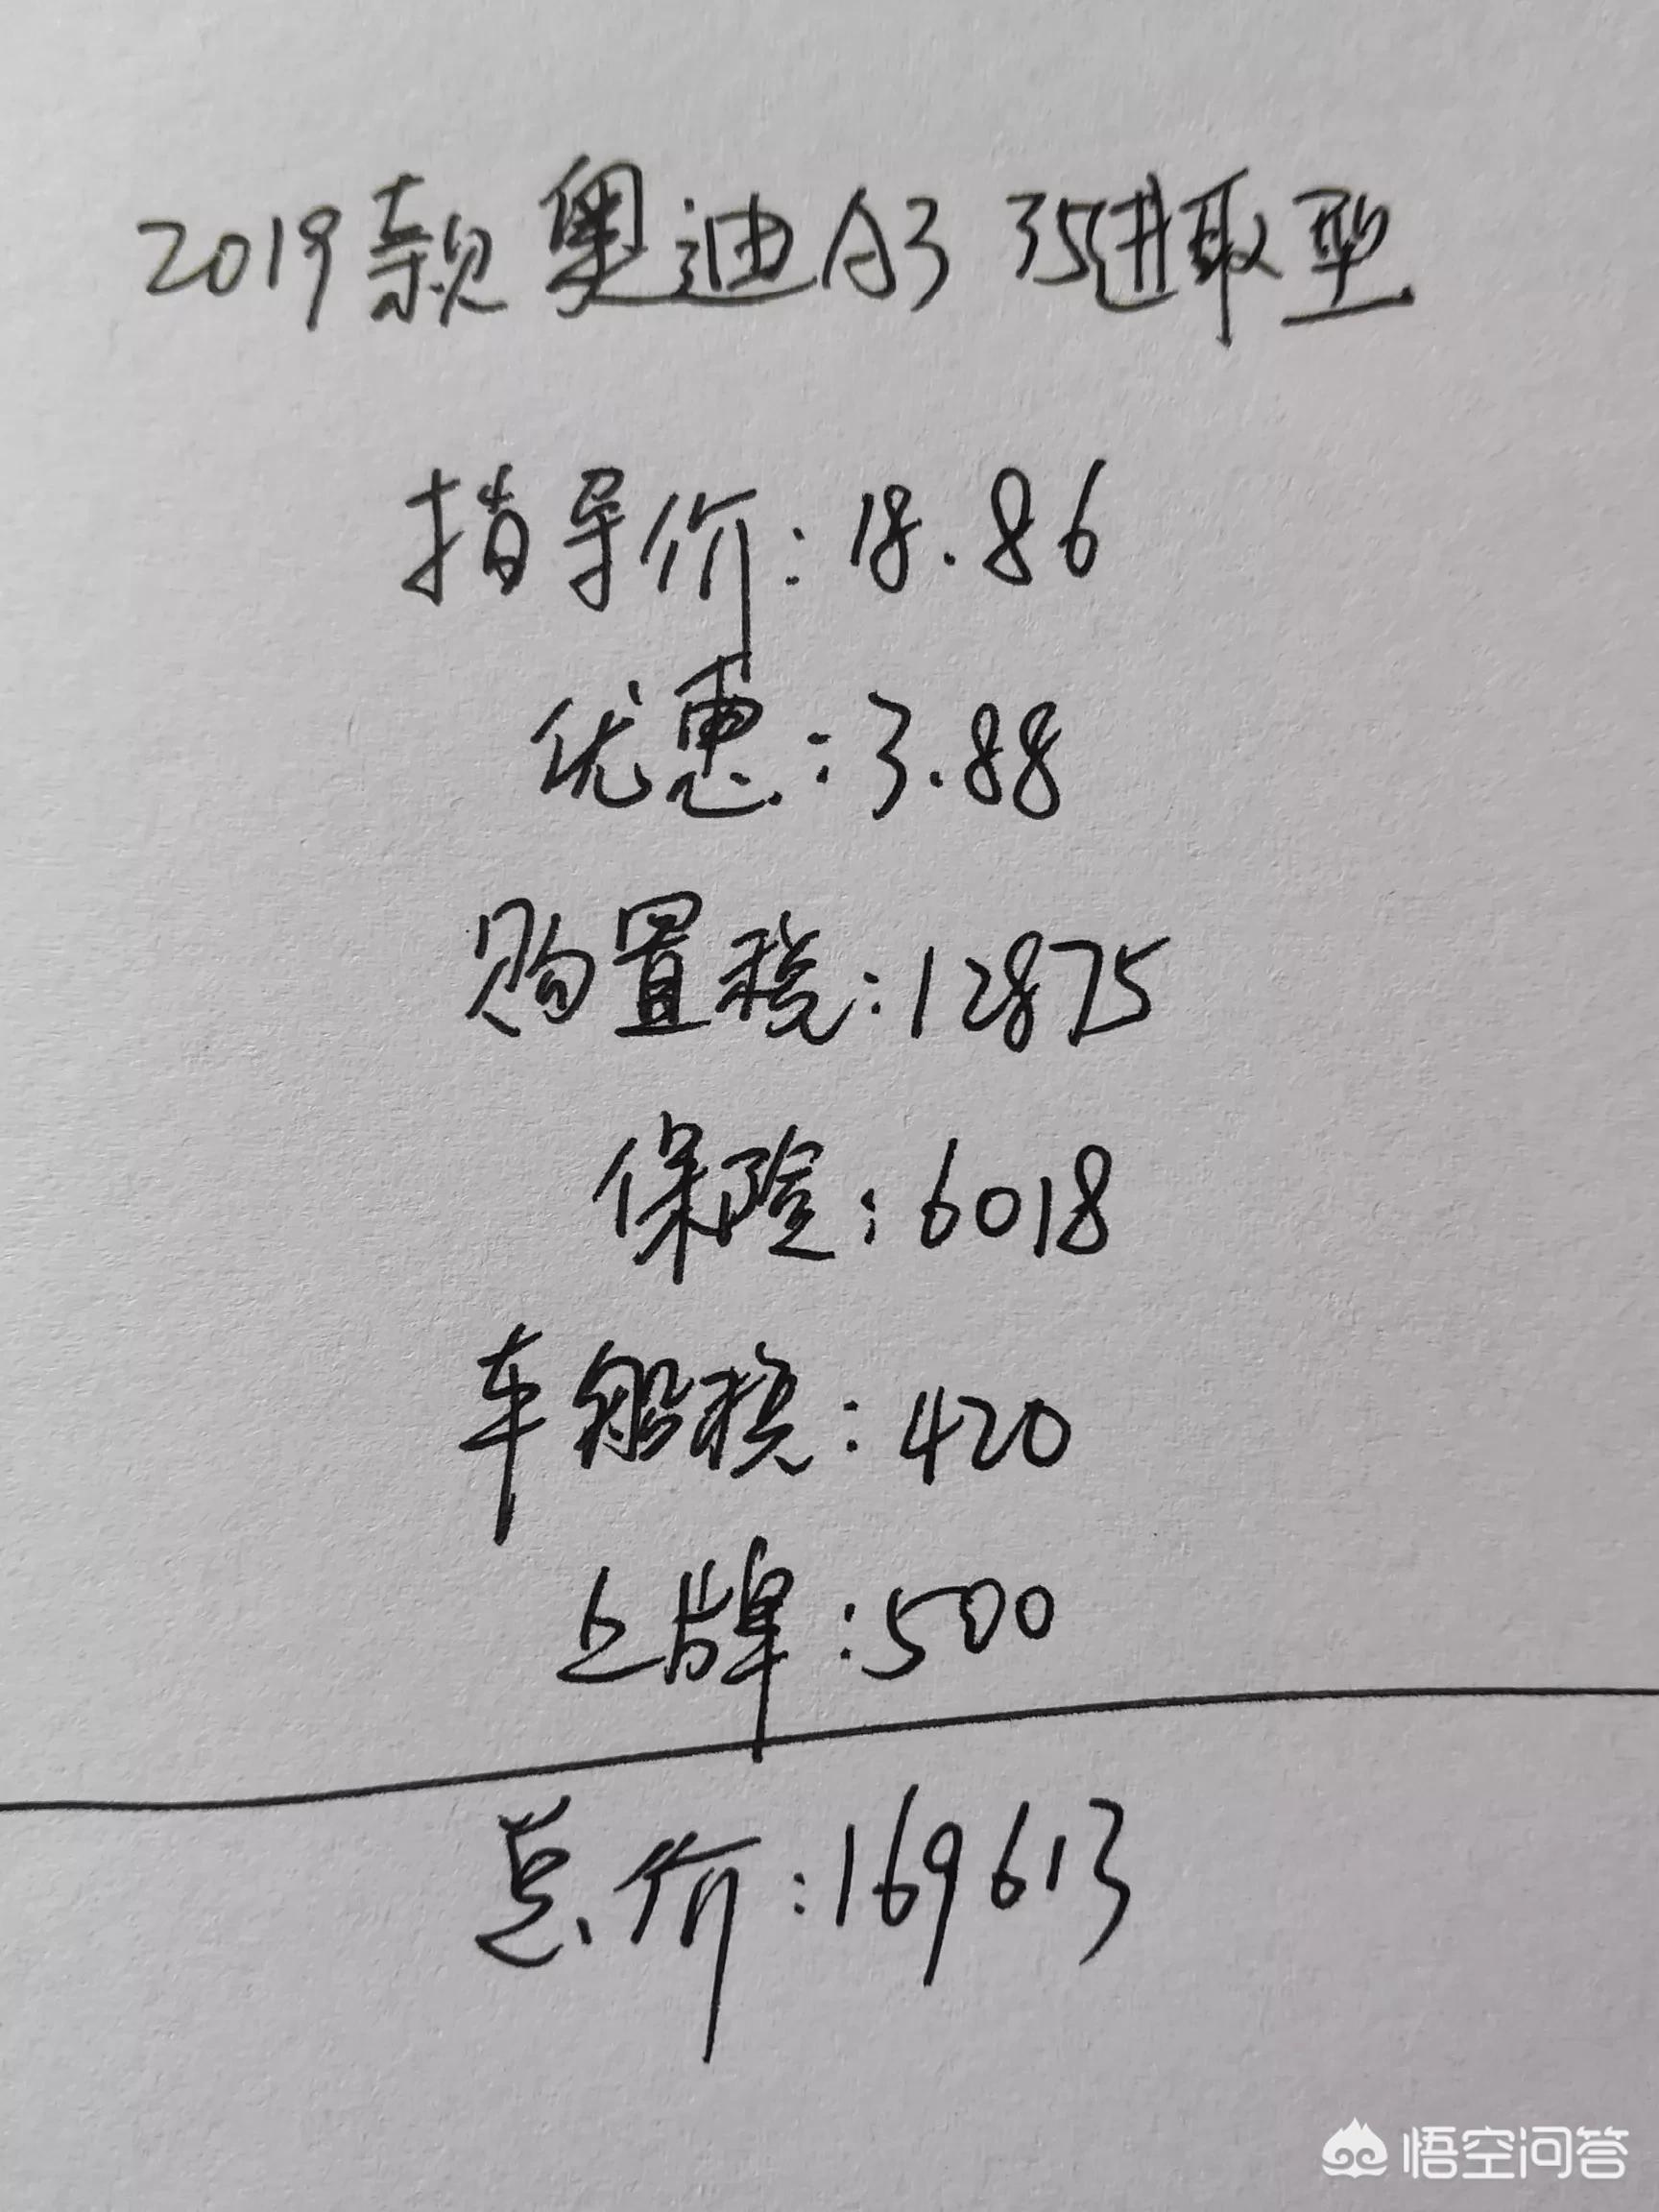 2019款奥迪A3 35进取型
指导价:18.86
优惠:3.88
购置税:12875
保险:6018
车船税:420
上牌:500
总价:169613
悟空问答